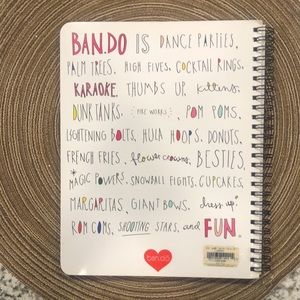 BAN.DO IS DANCE PARTIES,
PALM TREES, HIGH FIVES, COCKTAIL RINGS,
KARAOKE, THUMBS UP, kittens,
DUNK TANKS, FIRE WORKS, POM POMS,
LIGHTENING BOLTS, HULA HOOPS, DONUTS,
FRENCH FRIES, flower crowns, BESTIES,
MAGIC POWERS, SNOWBALL FIGHTS, CUPCAKES,
MARGARITAS, GIANT BOWS, dress up,
ROM COMS, SHOOTING STARS, and FUN.
ban.dō